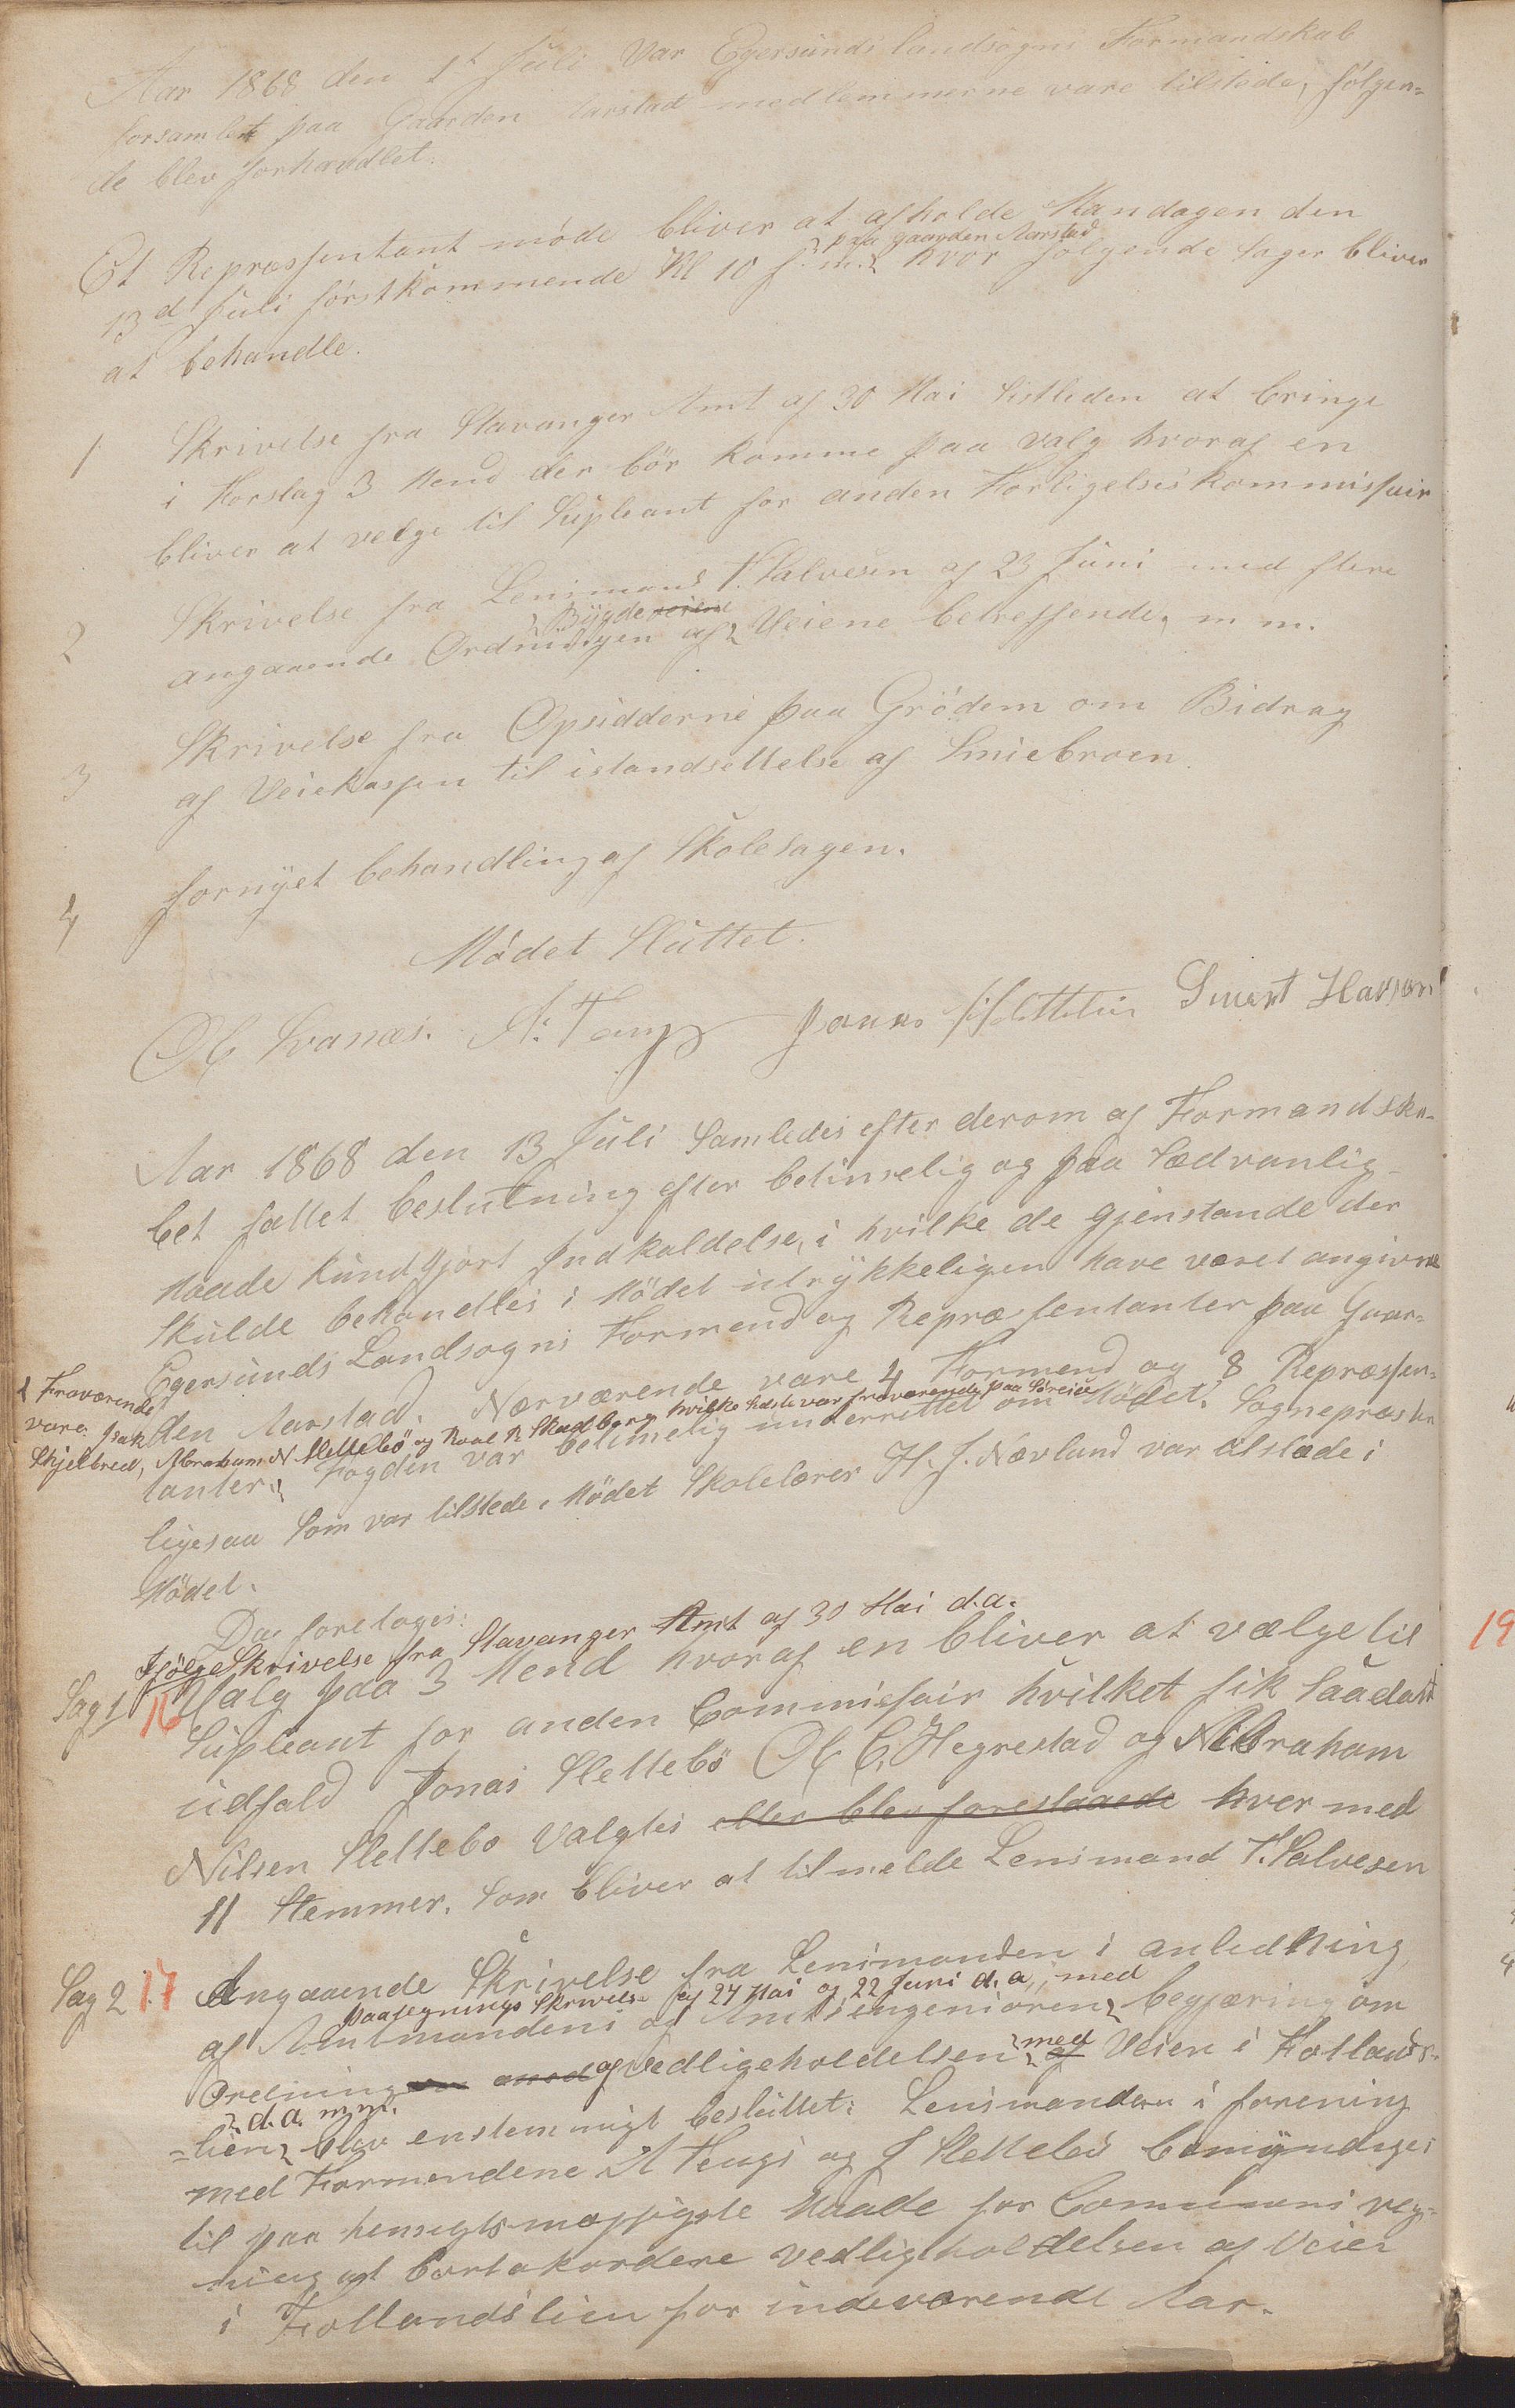 Aar 1868 den 1t Juli var Egersunds landsogns Formandskab
forsamlet paa Gaarden Aarstad medlemmerne vare tilstede, følgen=
de blev forhandlet.
Et Repræsentant møde bliver at afholde Mandagen den
paa gaarden Aarstad
13d Juli førstkommende Kl 10 f.m. hvor følgende Sager bliver
at behandle.
1 Skrivelse fra Stavanger Amt af 30 Mai Sistleden at bringe
i Forslag 3 Mend der bør komme paa valg hvoraf en
bliver at velge til Supleant for anden Forligelseskommissair
2 Skrivelse fra Lensmand T. Salvesen af 23 Juni med flere
Bygdeveiene
angaaende Ordningen af Veiene betreffende, m m.
3 Skrivelse fra Opsidderne paa Grødem om Bidrag
af Veiekassen til istandsettelse af Smiebroen.
4 fornyet behandling af Skolesagen.
Mødet Sluttet.
Ol Svanæs. A. Tengs Jonas Slettebø Sivert Havsøe
Aar 1868 den 13 Juli Samledes efter derom af Formandska-
bet fattet beslutning efter betimelig og paa Sædvanlig
Maade kundgjort Indkaldelse, i hvilke de gjenstande der
Skulde behandles i Mødet udtrykkeligen have været angivne
Egersunds Landsogns Formend og Repræsentanter paa Gaar=
den Aarstad. Nærværende vare 4 Formend og 8 Repræssen=
Fraværende
vare Isak
Skjelbred, Abraham N Slettebø og Roal R Skadberg hvilke sidste var fraværende paa Søreise
tanter. Fogden var betimelig underrettet om Mødet. Sognepræsten
ligesaa Som var tilstede, Mødet Skolelærer H. J. Nævland var tilstæde i
Mødet.
Da foretoges:
Ifølge Skrivelse fra Stavanger Amt af 30 Mai d.a.
Sag 1 16 Valg paa 3 Mend hvoraf en bliver at vælge til
Supleant for anden Commissair hvilket fik Saadant
udfald Jonas Slettebø Ol C. Hegrestad og Abraham
Nilsen Slettebø Valgtes eller blev foreslaaede hver med
11 Stemmer. Som bliver at tilmelde Lensmand T. Salvesen
Sag 2 17 Angaaende Skrivelse fra Lensmanden i anledning
paategnings Skrivelse af 27 Mai og 22 Juni d.a, med
af Amtmandens og Amtsingeniøren begjæring om
Ordning af vedligeholdelsen med af Veien i Fotlands-
d.a. m.m.
=lien blev enstemmigt besluttet: Lensmanden i forening
med Formendene A Tengs og J Slettebø bemyndiges
til paa hensigtsmæssigste Maade for Communens veg-
ning at bortakordere vedligholdelsen af Veien
i Fotlandslien for indeværende Aar.
19